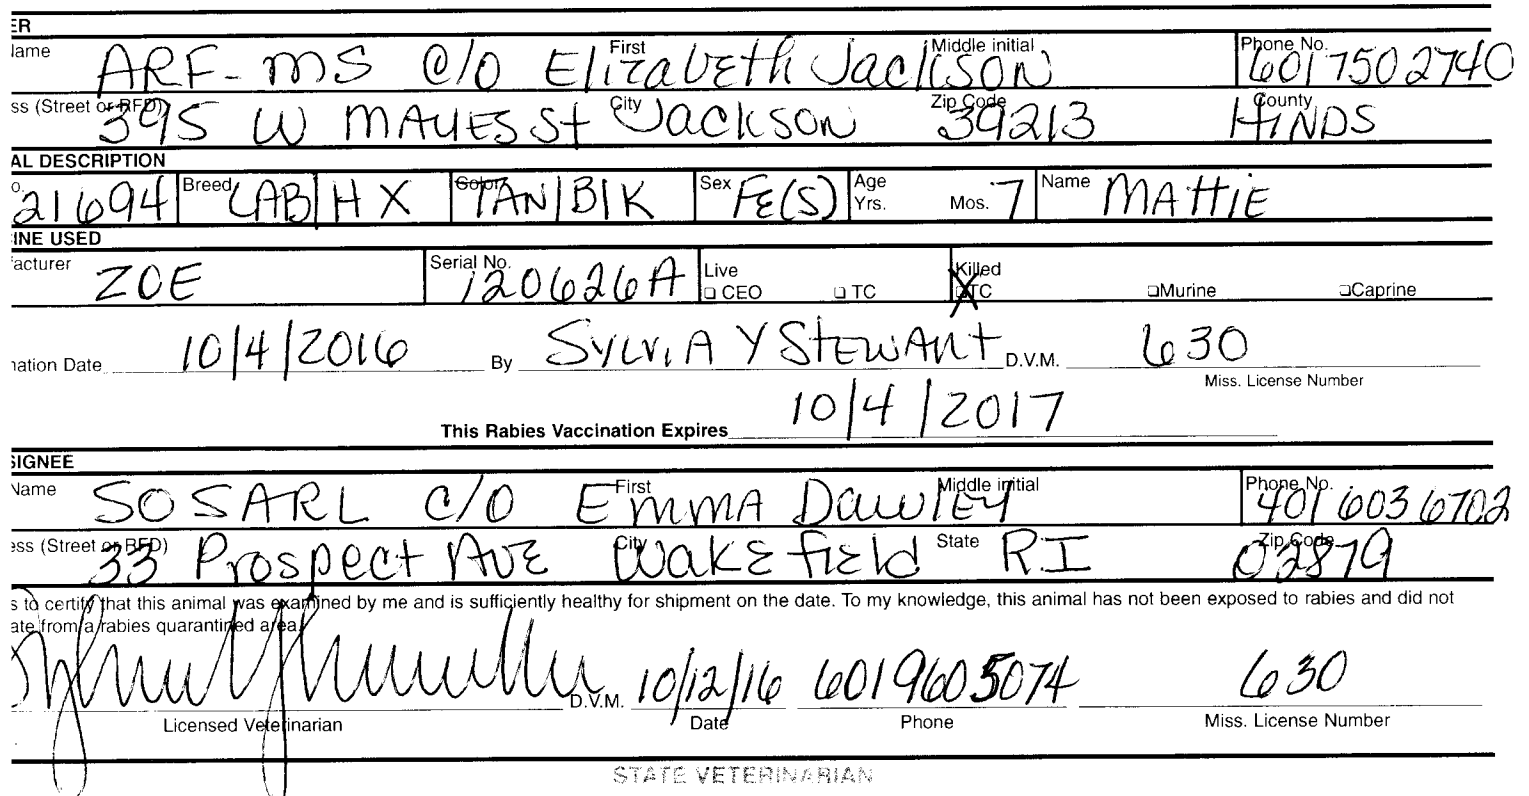 ER
lame ARF-MS C/O First Elizabeth Jackson Middle initial Phone No. 601 750 2740
ss (Street or RFD) 395 W MAYES St City Jackson Zip Code 39213 County HINDS
AL DESCRIPTION
o. 21694 Breed LAB|H X Color TAN|BlK Sex FE(S) Age Yrs. Mos. 7 Name MAttiE
INE USED
facturer ZOE Serial No. 120626A Live CEO TC Killed X TC Murine Caprine
nation Date 10/4/2016 By SYLVIA Y STEWARt D.V.M. 630
Miss. License Number
This Rabies Vaccination Expires 10/4/2017
SIGNEE
Name SOSARL C/O First EmmA DawlEy Middle initial Phone No. 401 603 6702
ess (Street or RFD) 33 Prospect AVE City WakEfiEld State RI Zip Code 02879
s to certify that this animal was examined by me and is sufficiently healthy for shipment on the date. To my knowledge, this animal has not been exposed to rabies and did not
ate from a rabies quarantined area.
D.V.M. 10/12/16 601 960 5074 630
Licensed Veterinarian Date Phone Miss. License Number
STATE VETERINARIAN